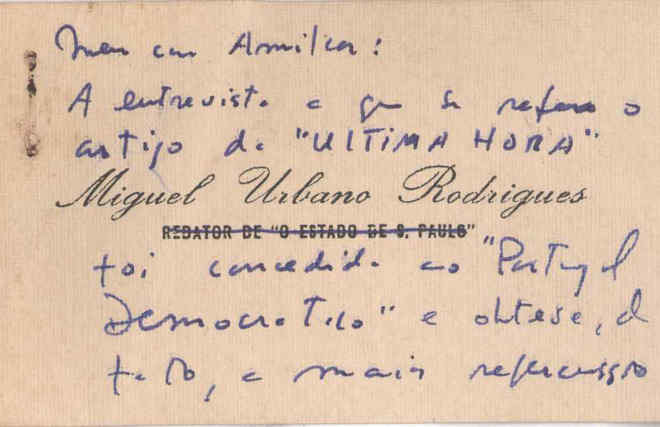 Meu caro Amilcar:
A entrevista a que se refere o
artigo de "ULTIMA HORA"
Miguel Urbano Rodrigues
REDATOR DE "O ESTADO DE S. PAULO"
foi concedida ao "Portugal
Democratico" e obteve, de
facto, a mais repercussão